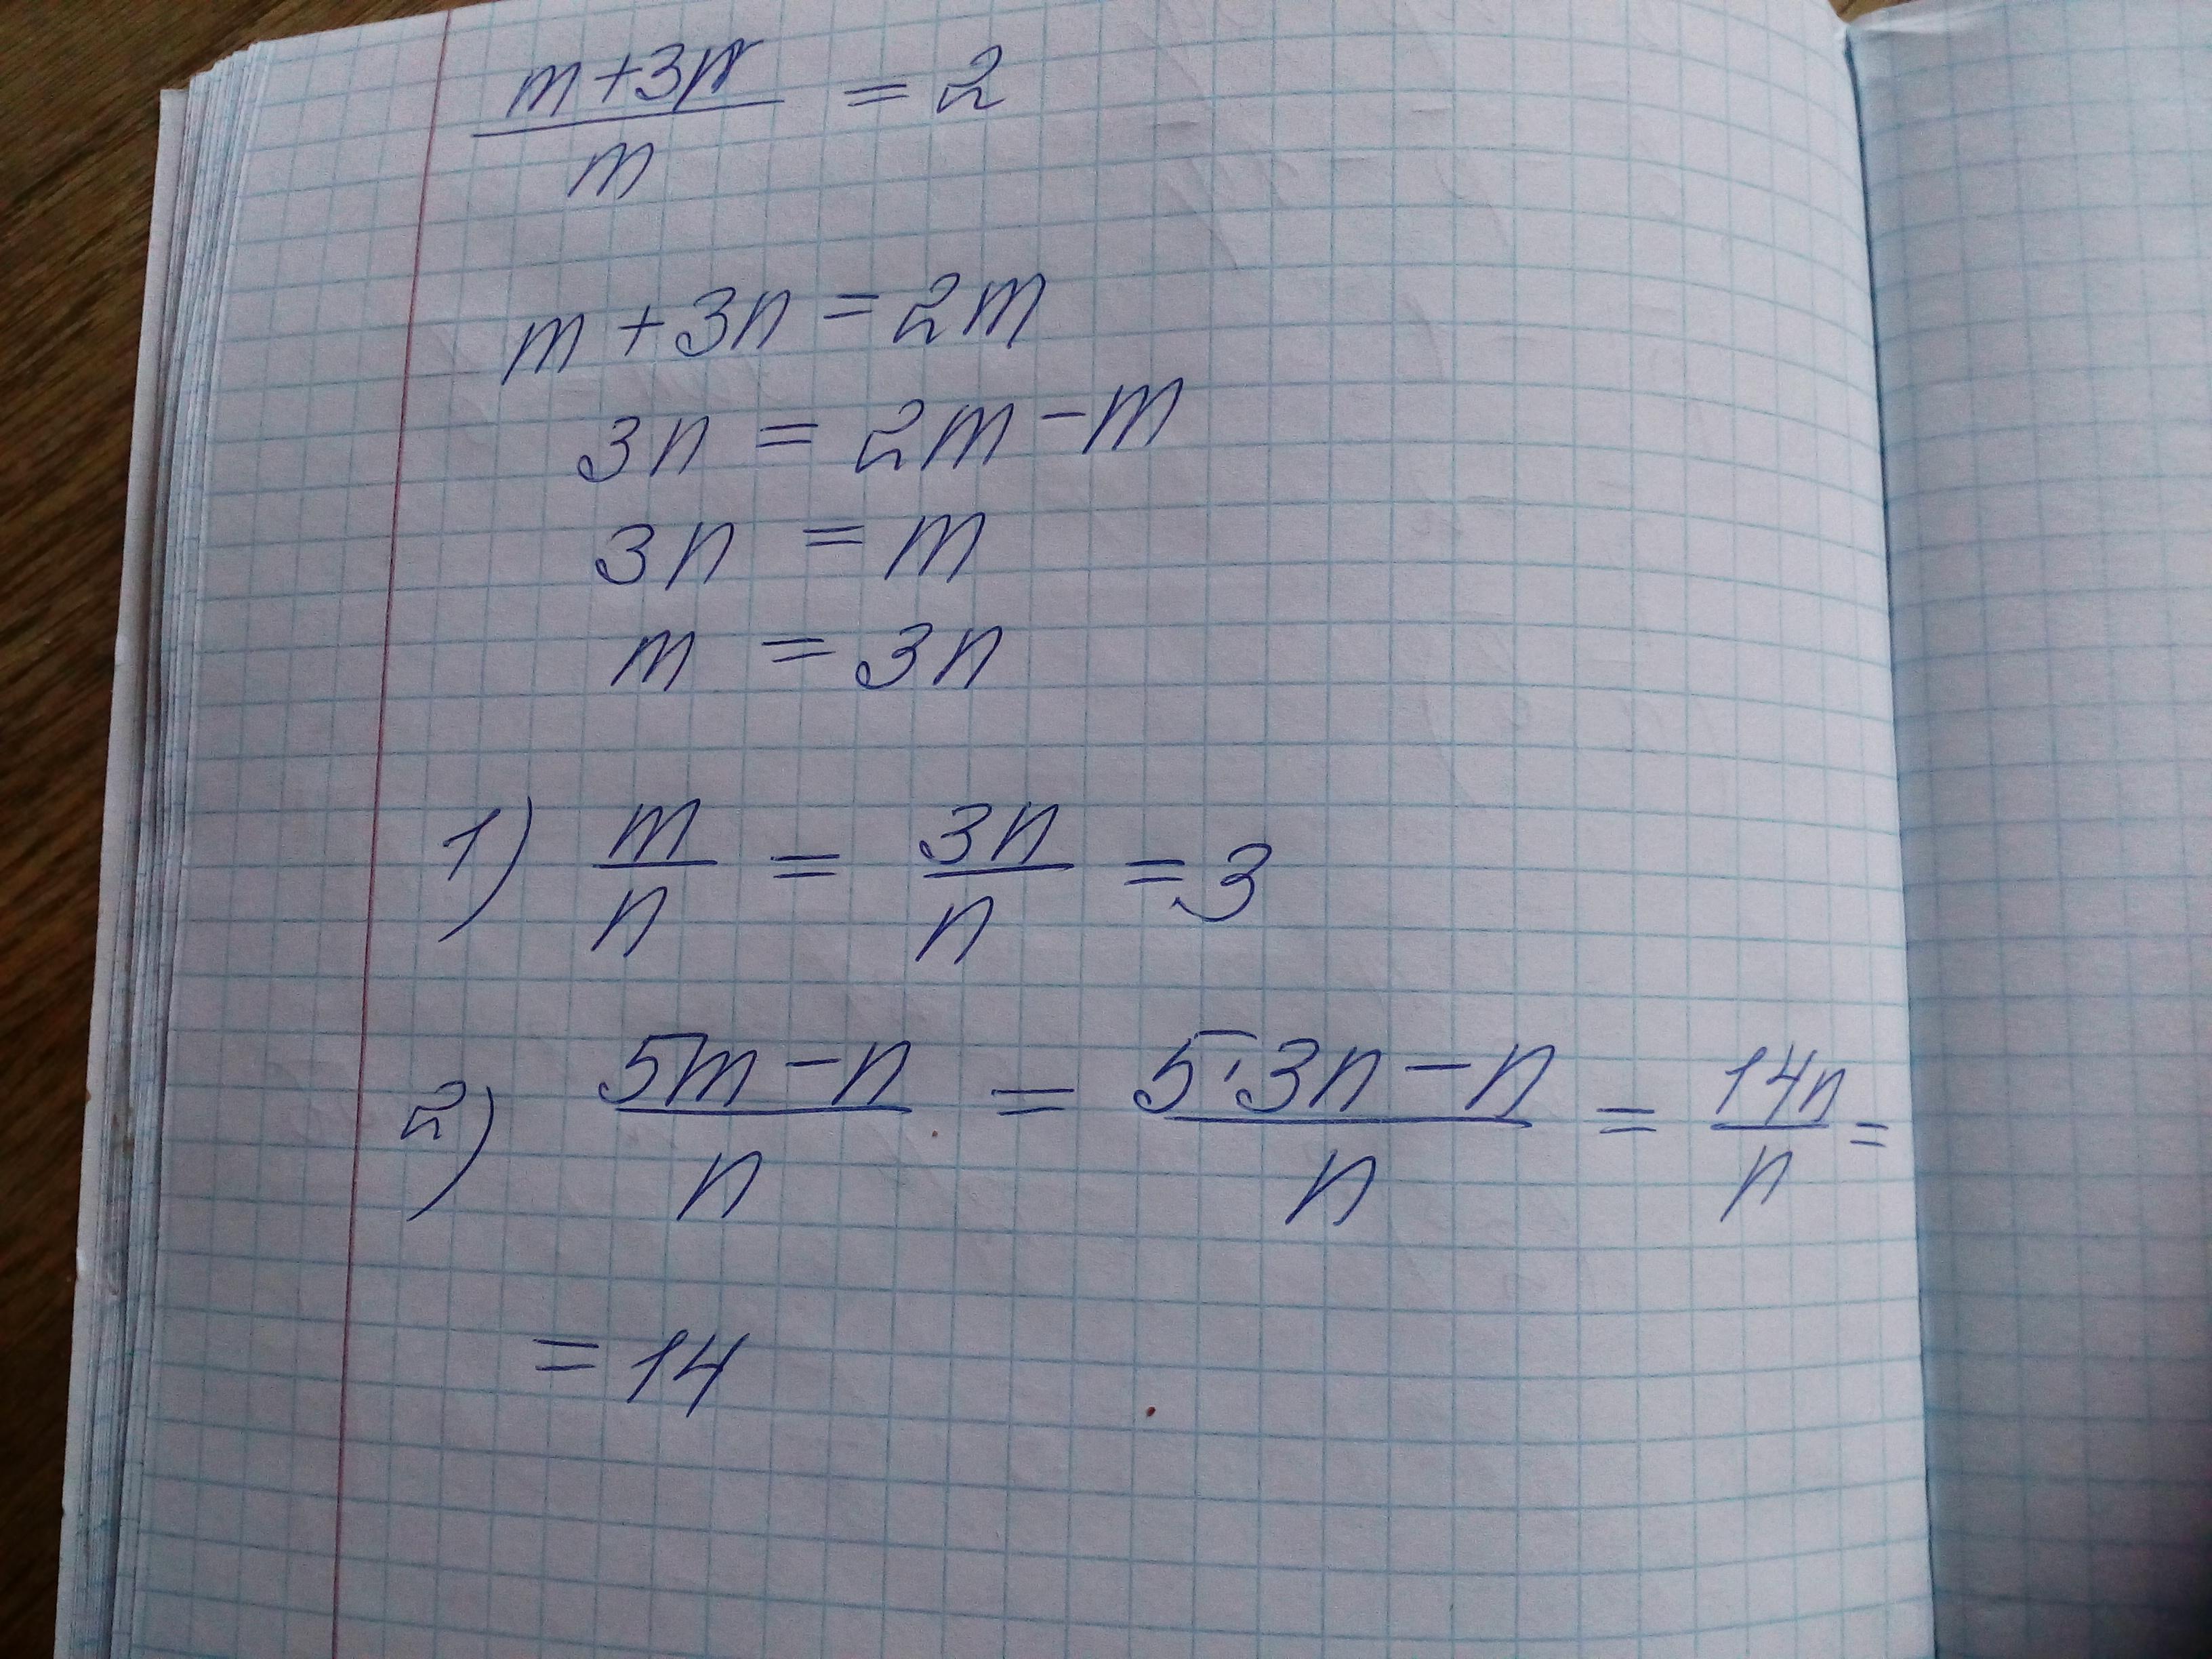 (m+3n)/m = 2
m + 3n = 2m
3n = 2m - m
3n = m
m = 3n
1) m/n = 3n/n = 3
2) (5m - n)/n = (5·3n - n)/n = 14n/n =
= 14